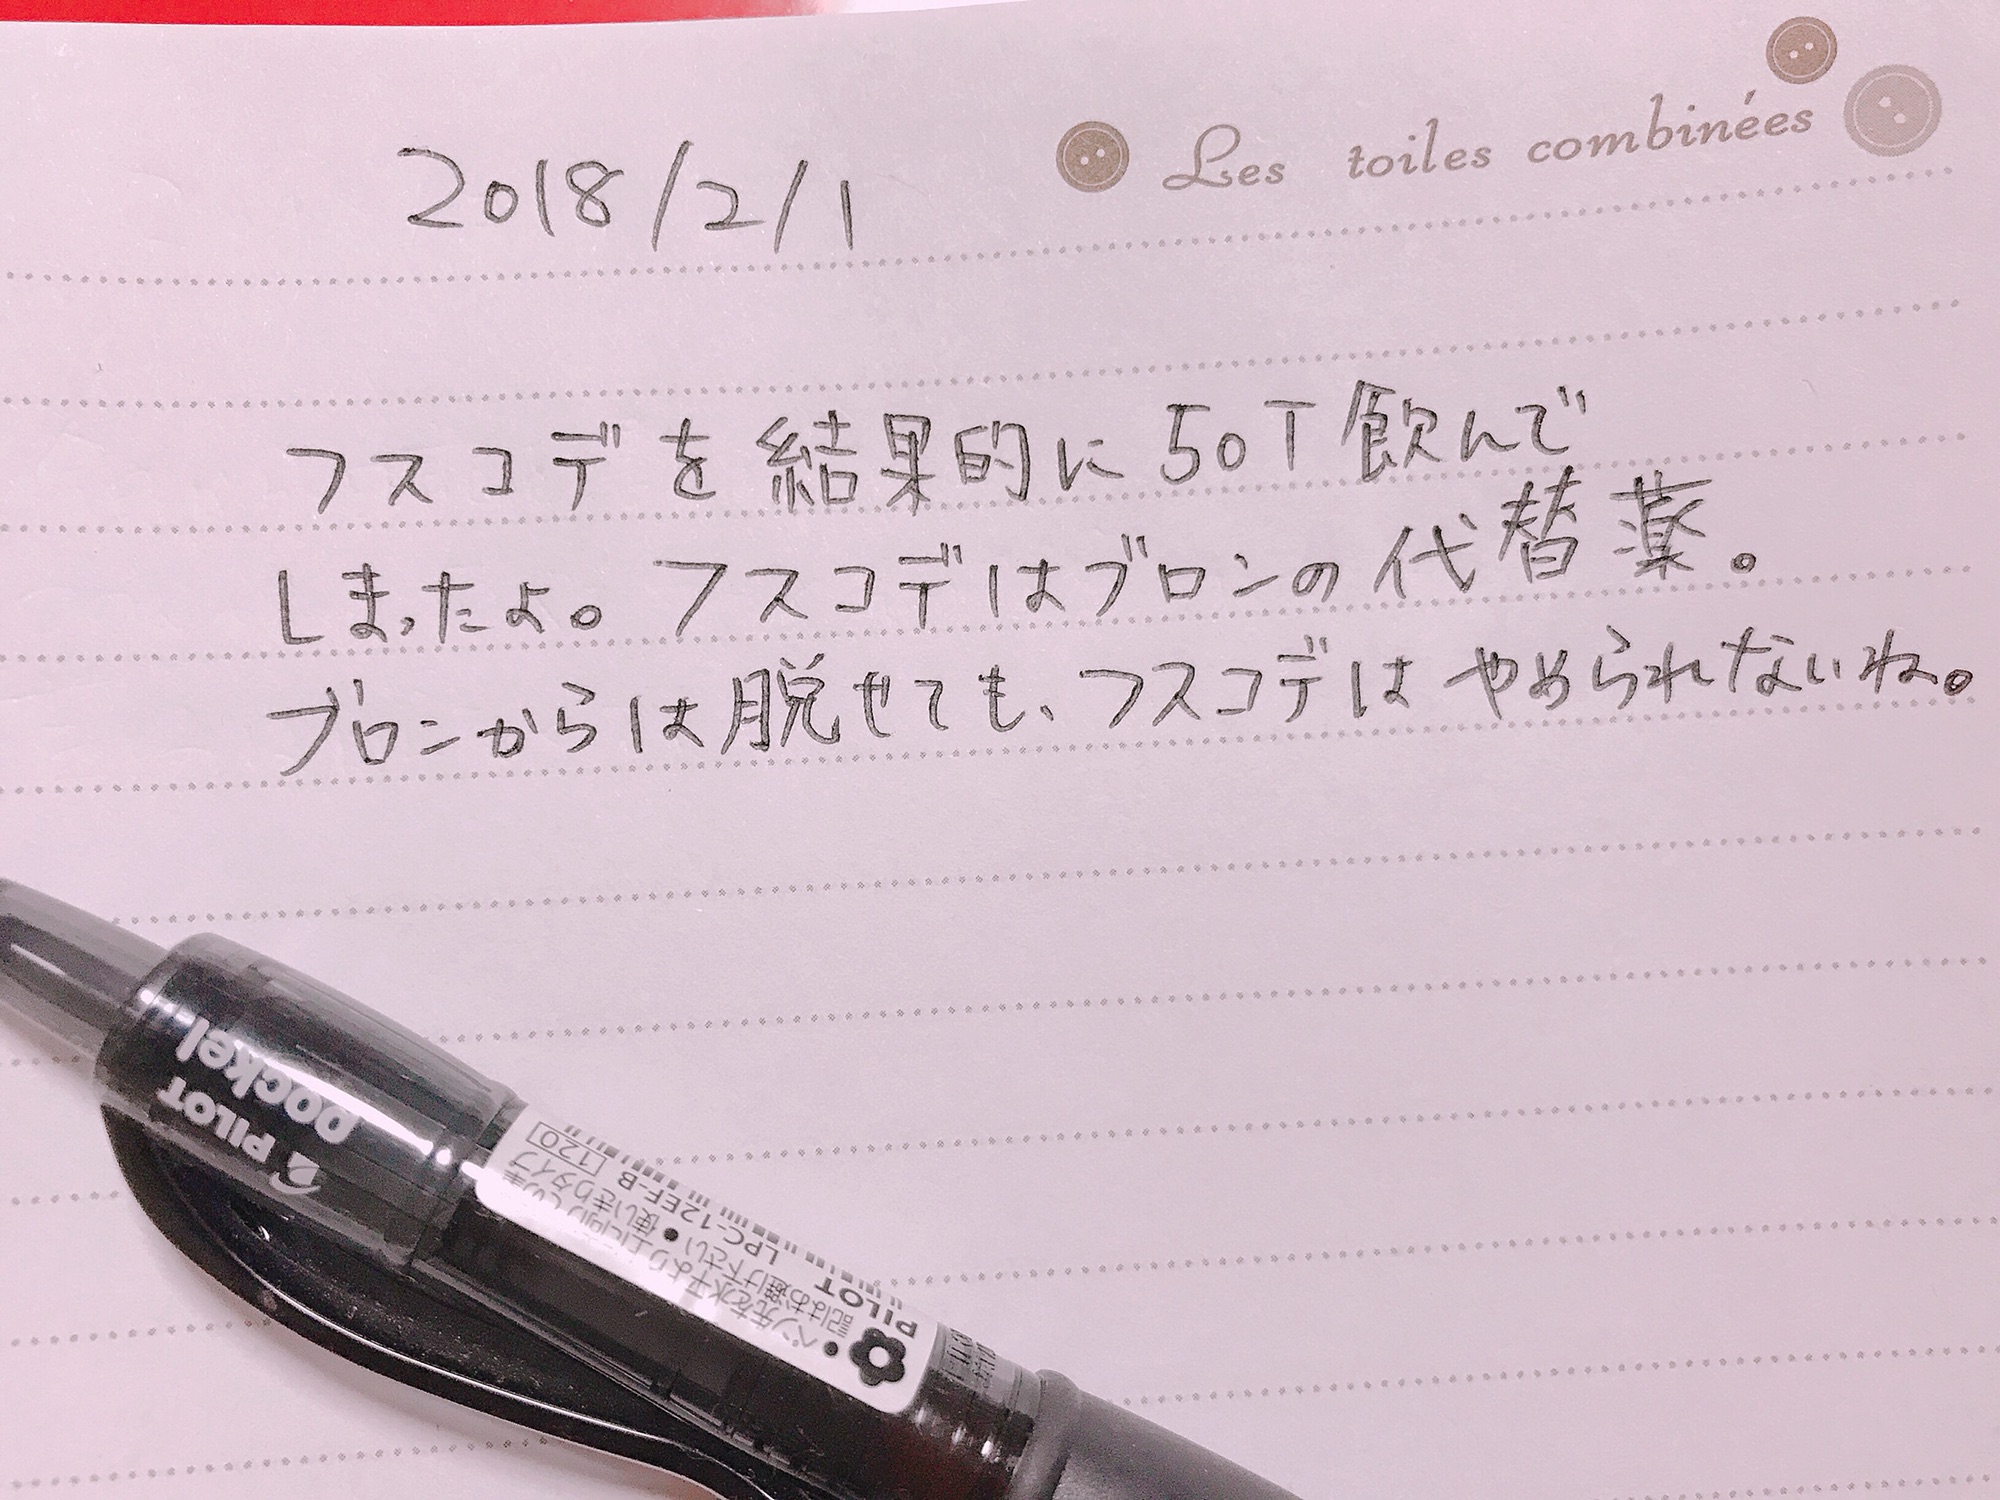 Les toiles combinées
2018/2/1
フスコデを結果的に50T飲んで
しまったよ。フスコデはブロンの代替薬。
ブロンからは脱せても、フスコデはやめられないね。
PILOT
pockel
120
使いきりタイプ
LPC-12EF-B
PILOT